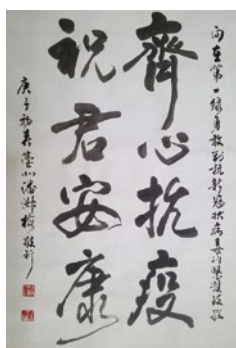 向在第一線勇敢對抗新冠狀病毒的醫護致敬
齊心抗疫
祝君安康
庚子初春
潘
敬言